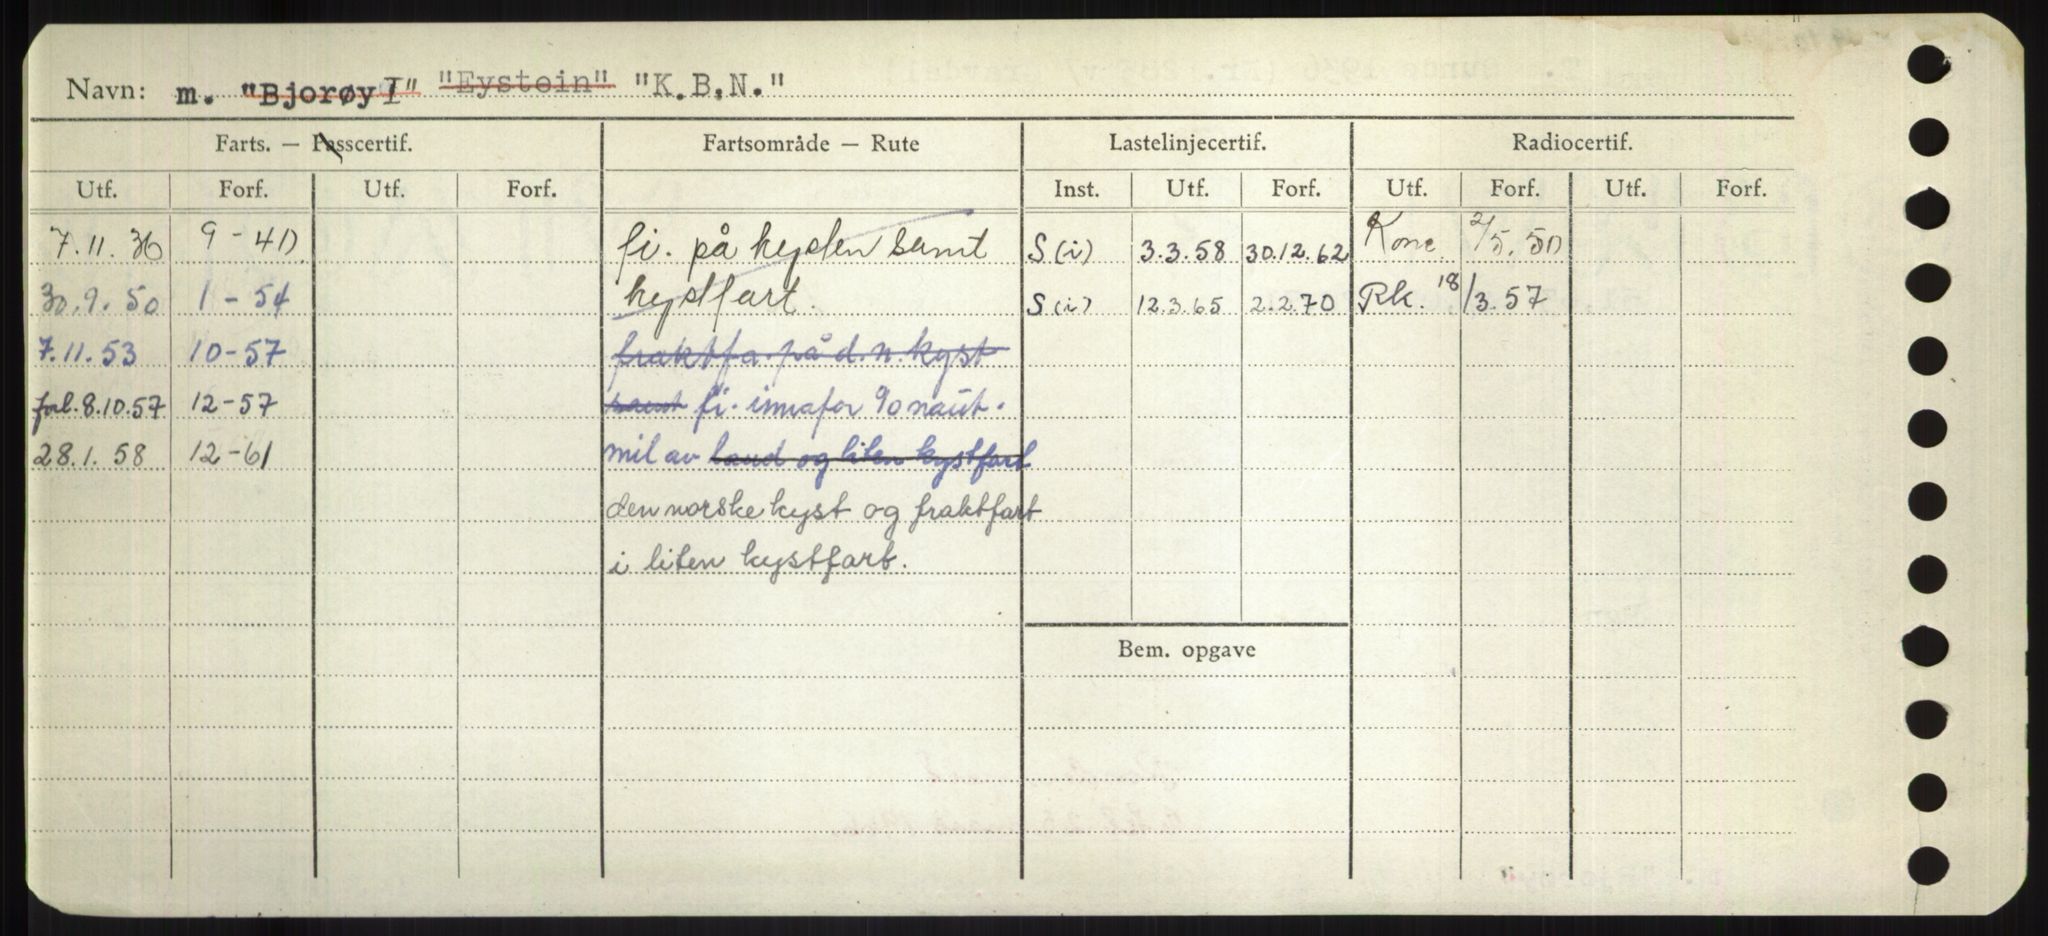 Navn: m. "Bjorøy I" "Eystein" "K.B.N."
Farts. — Passcertif. Fartsområde — Rute Lastelinjecertif. Radiocertif.
Utf. Forf. Utf. Forf. Inst. Utf. Forf. Utf. Forf. Utf. Forf.
7.11.36 9-40. fi. på kysten samt S (i) 3.3.58 30.12.62 Konc 2/5.50
30.9.50 1-54 kystfart. S (i) 12.3.65 2.2.70 Rk. 18/3.57
7.11.53 10-57 fraktfa. på d. n. kyst
forl. 8.10.57 12-57 samt fi. innafor 90 naut.
28.1.58 12-61 mil av land og liten kystfart
den norske kyst og fraktfart
i liten kystfart.
Bem. opgave